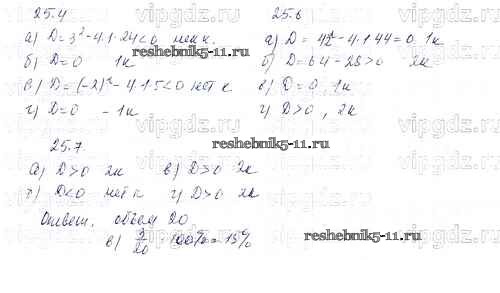 25.4
а) D=3²-4·1·24<0 нет к.
б) D=0 1к
в) D=(-2)²-4·1·5<0 нет к
г) D=0 - 1к
25.6
а) D=4²-4·1·44=0 1к
б) D=64-28>0 2к
в) D=0, 1к
г) D>0, 2к
25.7.
а) D>0 2к в) D>0 2к
б) D<0 нет к г) D>0 2к
Ответ. объем 20
в) 3/20 · 100% = 15%
reshebnik5-11.ru
reshebnik5-11.ru
vipgdz.ru